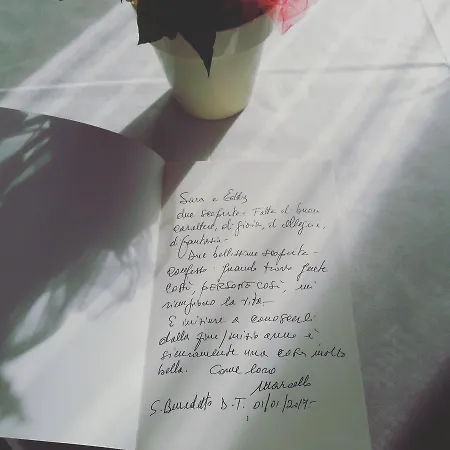 Sara e Eddy
due scoperte - Fatte di buon
carattere, di gioia, di allegria,
di fantasia -
Due bellissime scoperte -
confesso: quando trovo gente
così, PERSONE COSÌ, mi
riempiono la vita -
E iniziare a conoscerli
dalla fine/inizio anno è
sinceramente una cosa molto
bella. Come loro
Marcello
S. Benedetto D. T. 01/01/2017 -